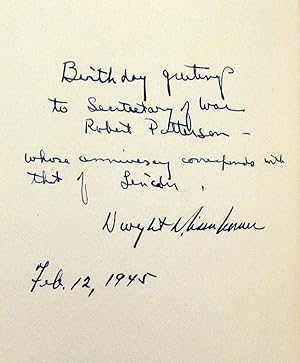 Birthday greetings
to Secretary of War
Robert Patterson –
whose anniversary corresponds with
that of Lincoln.
Dwight D. Eisenhower
Feb. 12, 1945